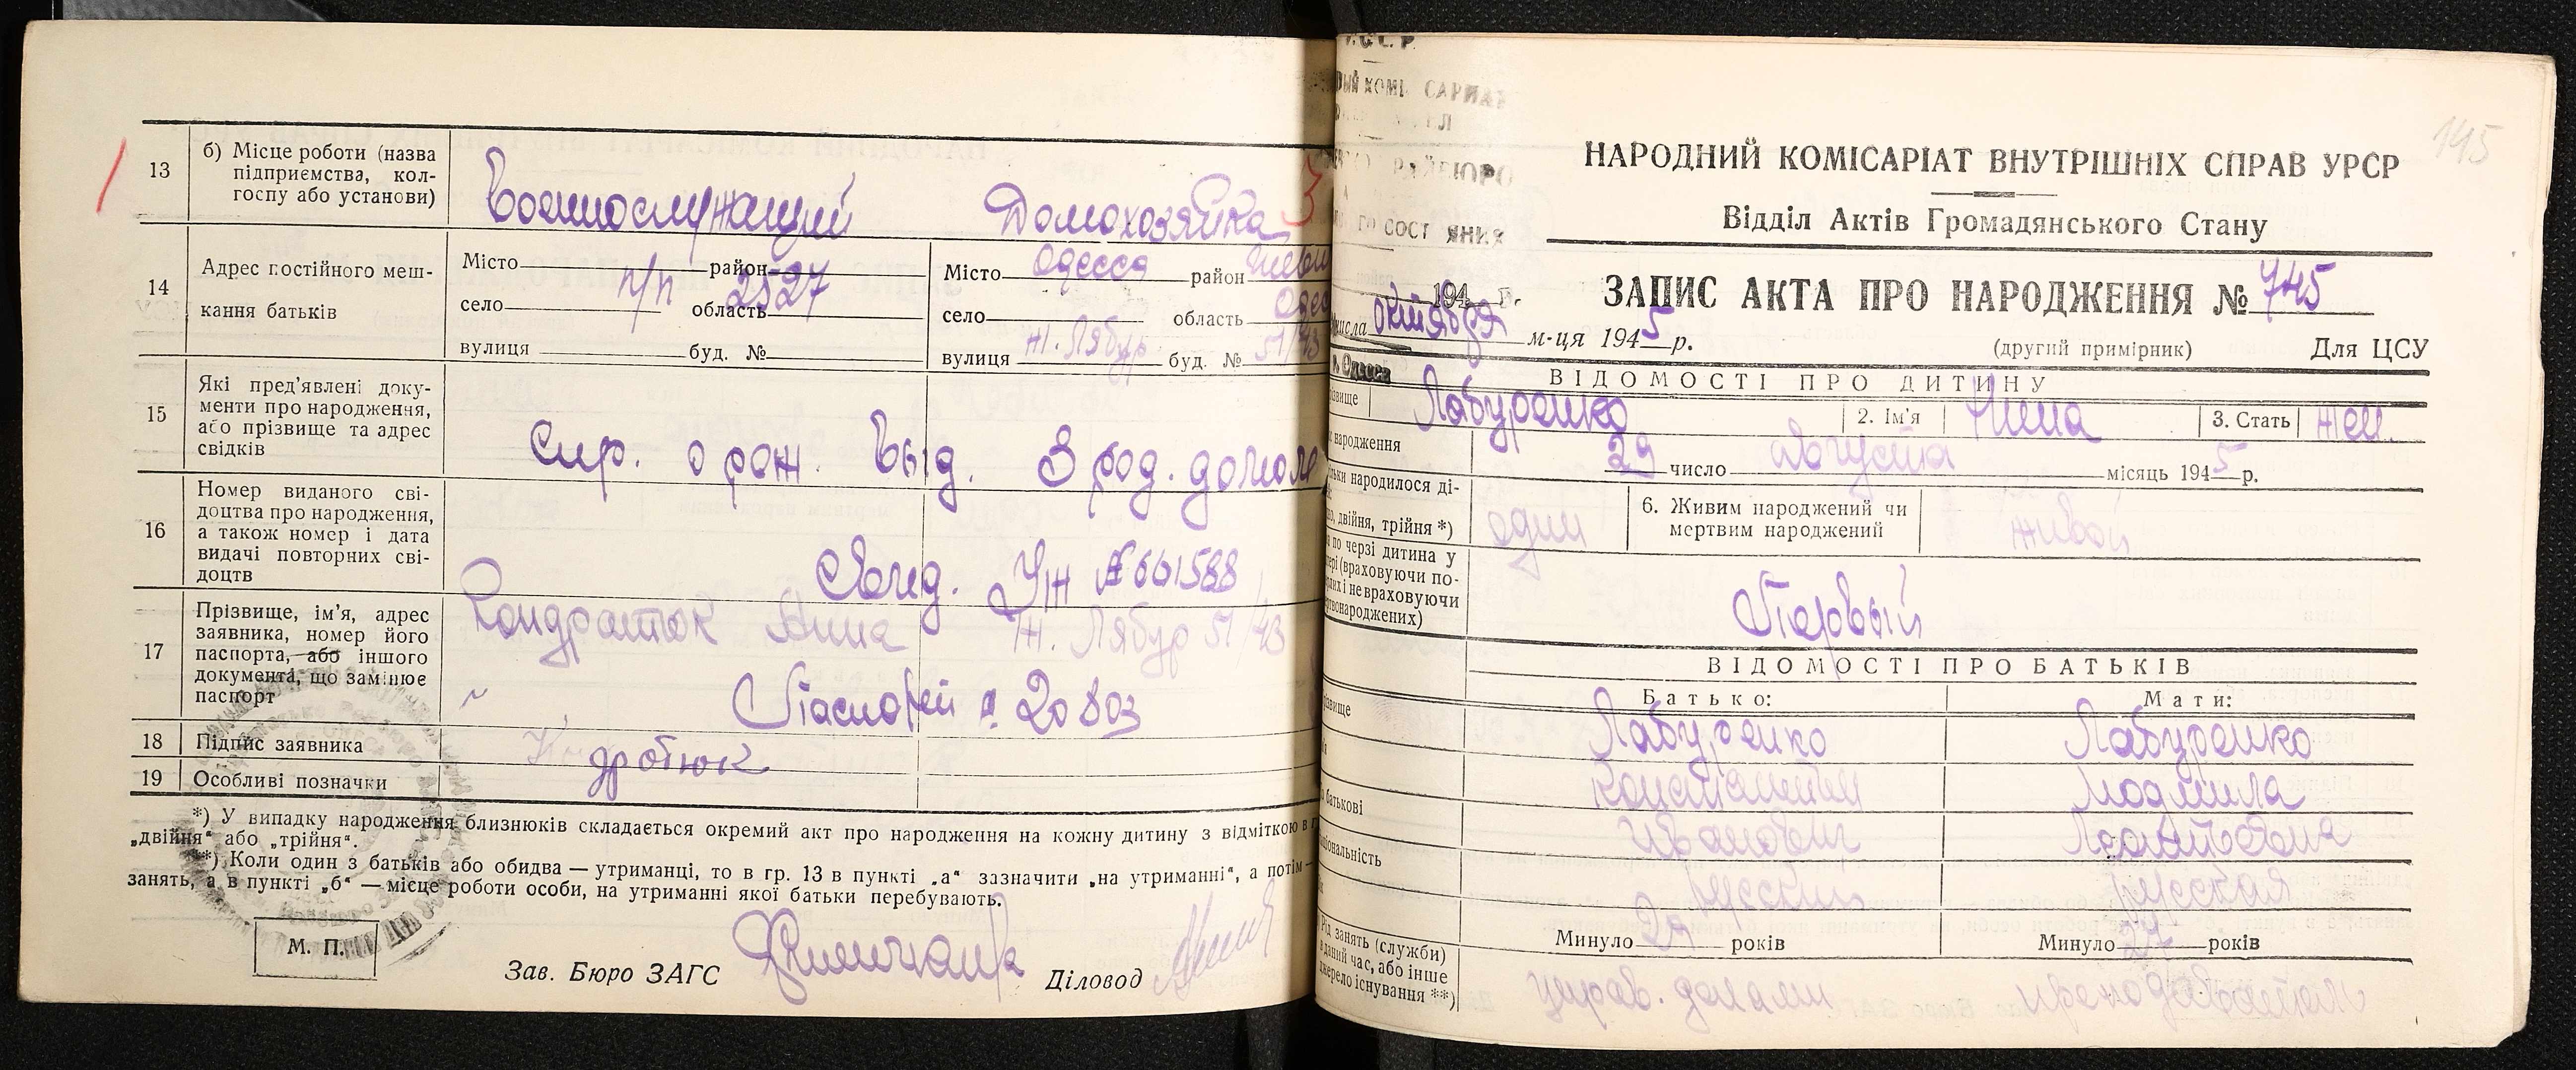 13
б) Місце роботи (назва
підприємства, кол-
госпу або установи)
Военнослужащий Домохозяйка
14
Адрес постійного меш-
кання батьків
Місто район
п/п 2527
село область
вулиця буд. №
Місто Одесса район
село область
вулиця Ж. Лябур буд. № 51/43
15
Які пред'явлені доку-
менти про народження,
або прізвище та адрес
свідків
Спр. о рож. выд. 8 род. домом
16
Номер виданого сві-
доцтва про народження,
а також номер і дата
видачі повторних сві-
доцтв
Свид. УЖ № 661588
17
Прізвище, ім'я, адрес
заявника, номер його
паспорта, або іншого
документа, що замінює
паспорт
Кондратюк Анна Ж. Лябур 51/43
Паспорт 20803
18 Підпис заявника
19 Особливі позначки
*) У випадку народження близнюків складається окремий акт про народження на кожну дитину з відміткою в
„двійня“ або „трійня“.
**) Коли один з батьків або обидва — утриманці, то в гр. 13 в пункті „а“ зазначити „на утриманні“, а потім —
занять, а в пункті „б“ — місце роботи особи, на утриманні якої батьки перебувають.
М. П.
Зав. Бюро ЗАГС Діловод
145
НАРОДНИЙ КОМІСАРІАТ ВНУТРІШНІХ СПРАВ УРСР
Відділ Актів Громадянського Стану
ЗАПИС АКТА ПРО НАРОДЖЕННЯ № 745
194 г.
числа октября м-ця 1945 р.
(другий примірник) Для ЦСУ
г. Одесса
ВІДОМОСТІ ПРО ДИТИНУ
Лабуренко 2. Ім'я Нина 3. Стать жен.
народження 29 число Августа місяць 1945 р.
народилося ді-
двійня, трійня *)
один
6. Живим народжений чи
мертвим народжений
живой
по черзі дитина у
(враховуючи по-
і не враховуючи
народжених)
Первый
ВІДОМОСТІ ПРО БАТЬКІВ
Батько: Мати:
Лабуренко Лабуренко
Константин Людмила
батькові
Иванович Леонтьевна
русский русская
Минуло років Минуло років
Рід занять (службы)
в даний час, або інше
джерело існування **)
управ. делами преподаватель